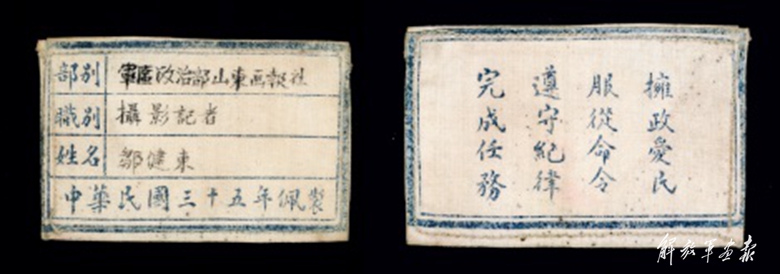 部别 軍區政治部山東画報社
職别 攝影記者
姓名 鄒健東
中華民國三十五年佩製
擁政愛民
服從命令
遵守紀律
完成任務
解放军画报